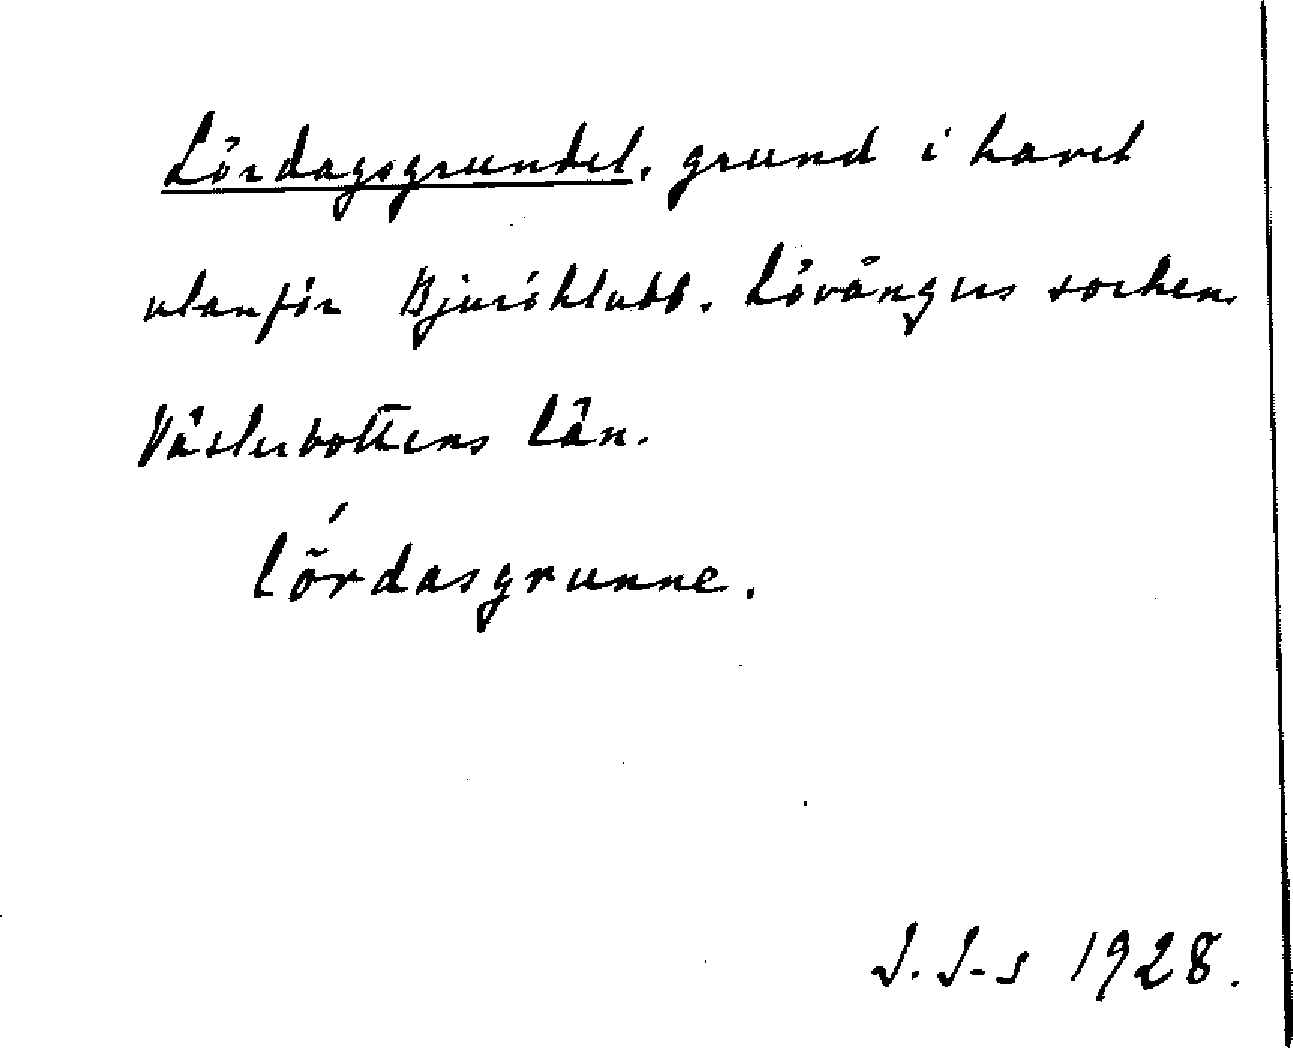 Lördagsgrundet, grund i havet
utanför Bjuröklubb. Lövångers socken.
Västerbottens län.
lṍrdasgrunne.
J. J-s 1928.